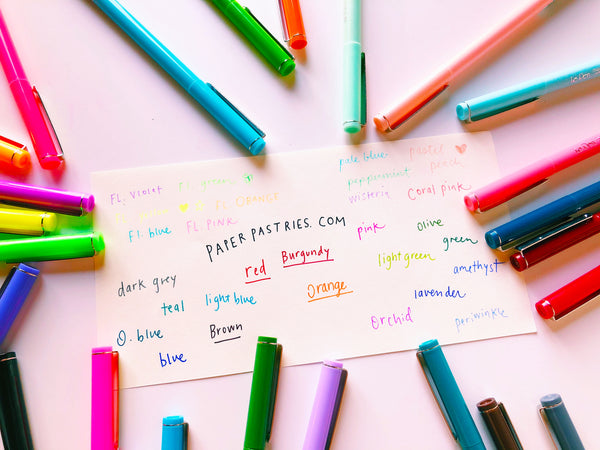 FL. Violet FL. green
FL. yellow FL. ORANGE
FL. blue FL. PINK
pale blue pastel
peppermint peach
wisteria Coral pink
PAPER PASTRIES. COM
pink olive
green
red Burgundy
light green
amethyst
dark grey
teal light blue
Orange
lavender
O. blue Brown
Orchid periwinkle
blue